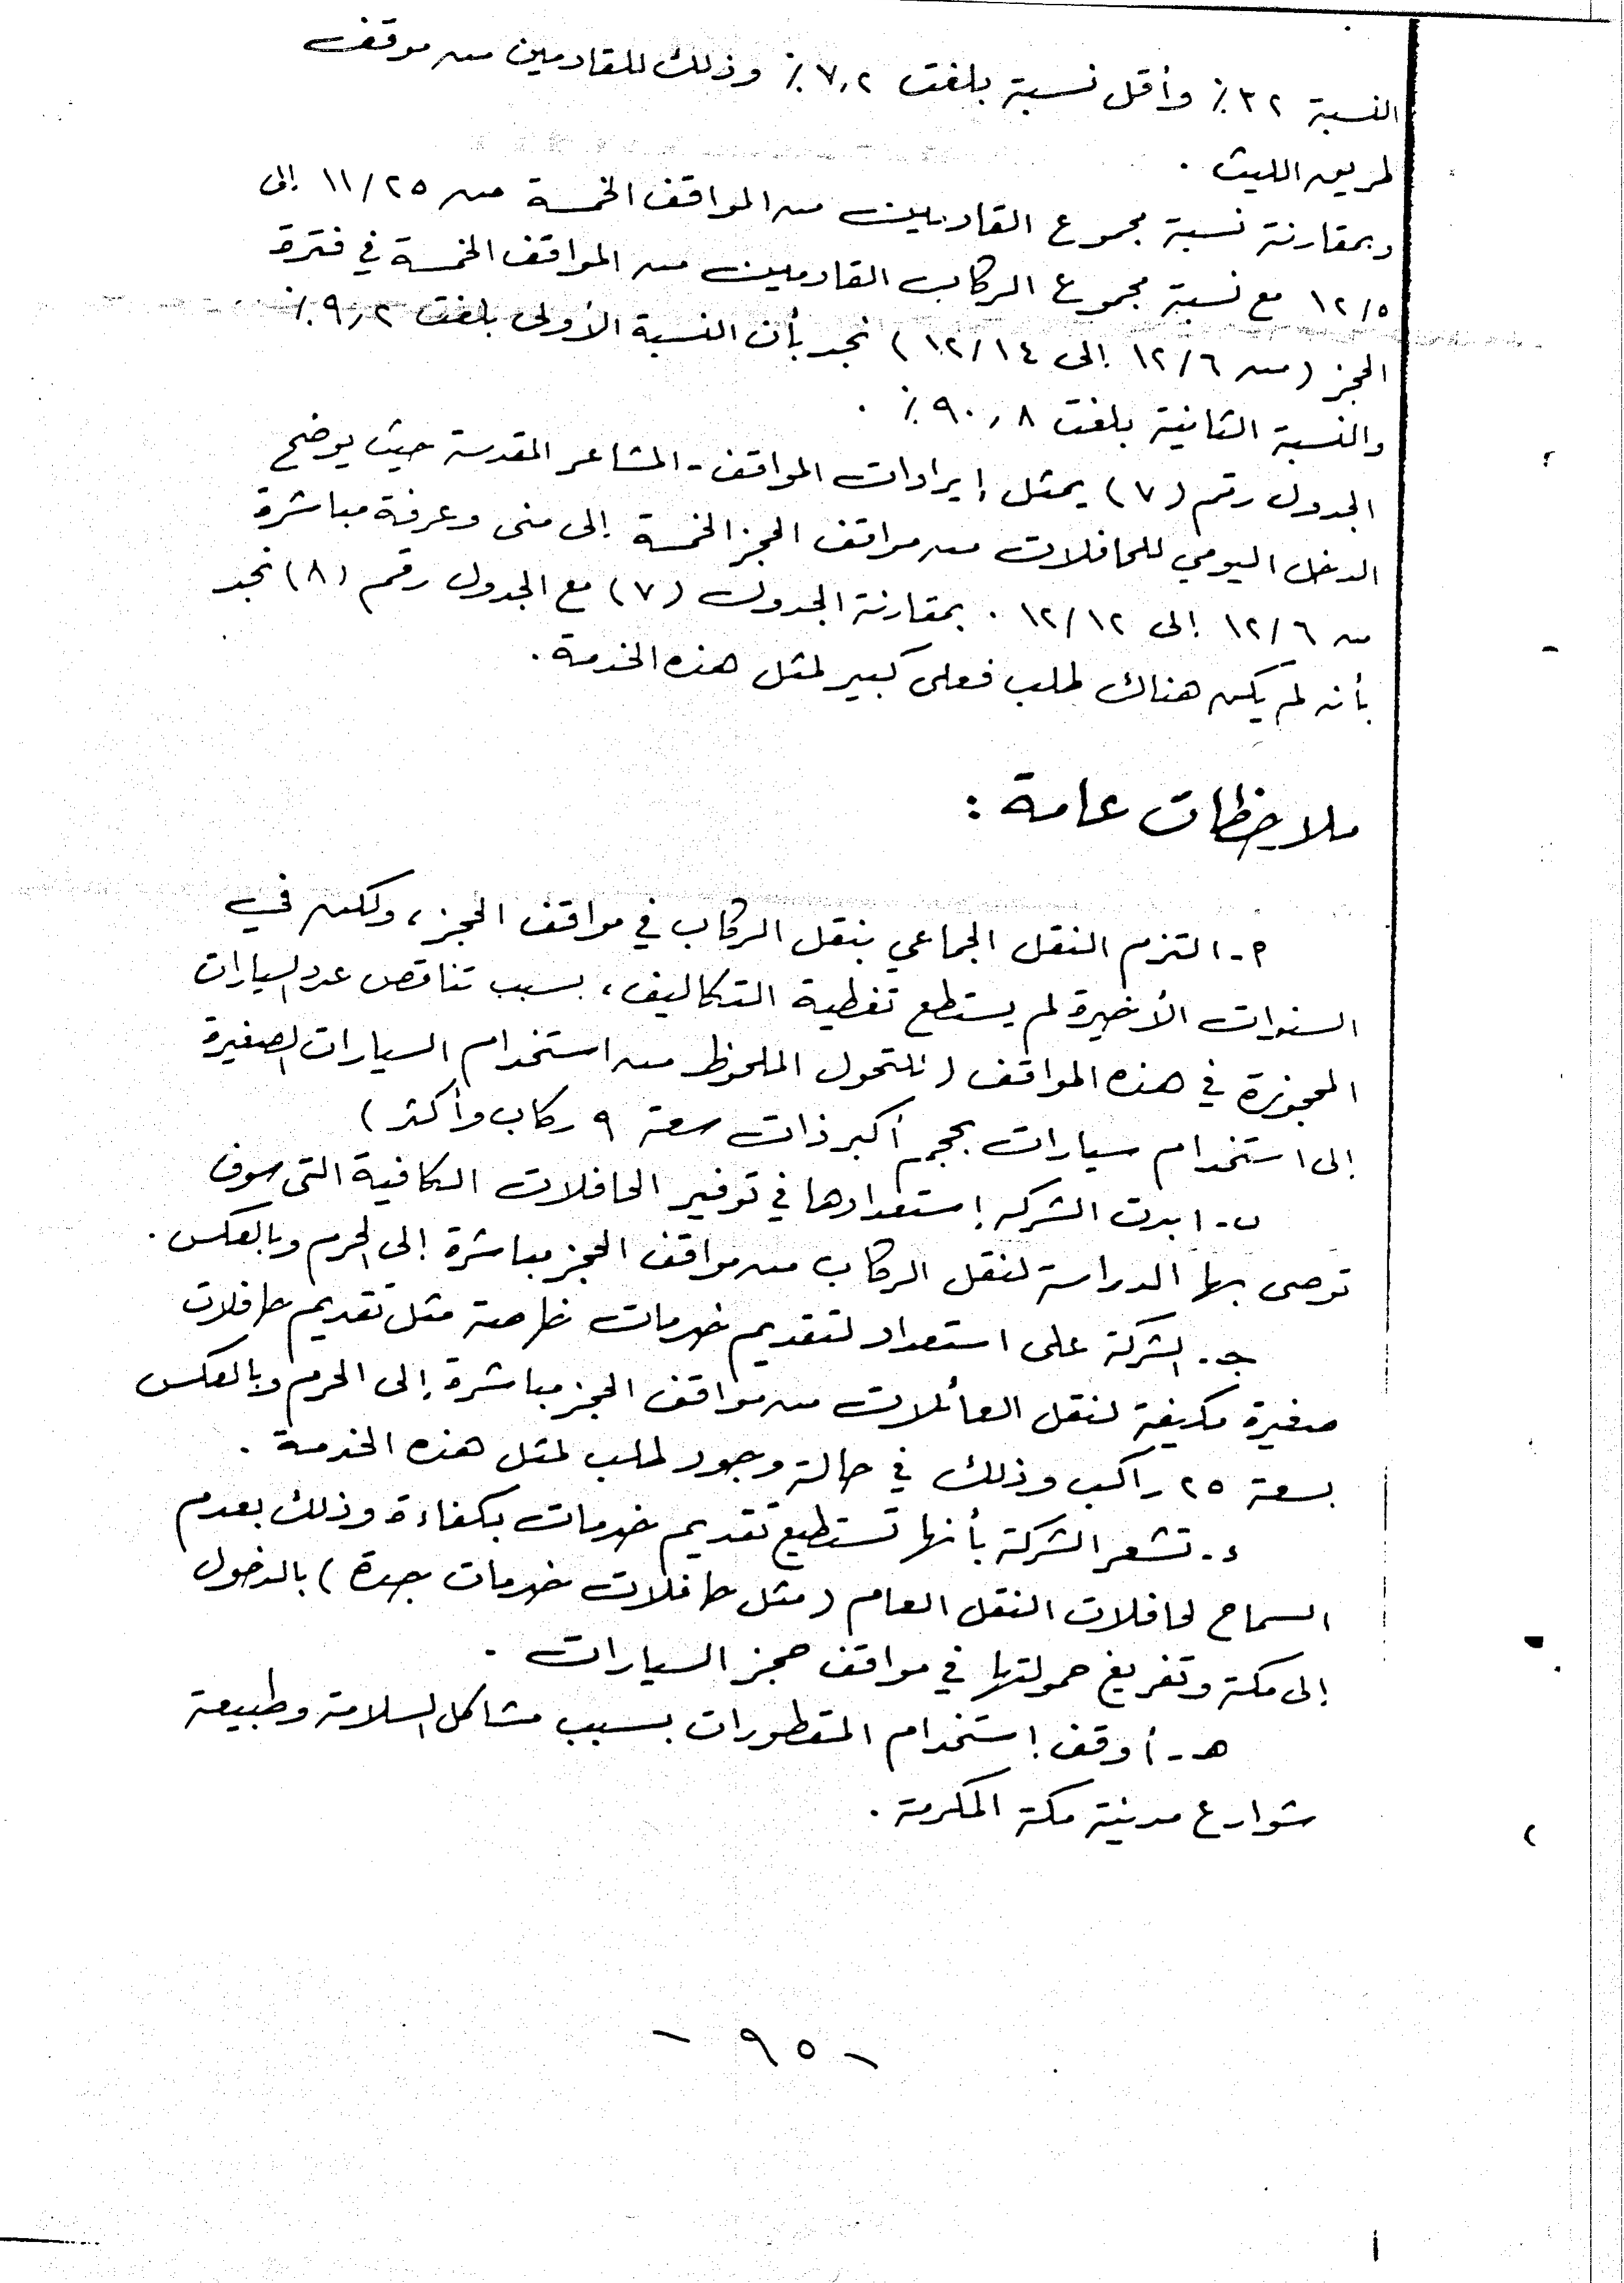 النسبة ٣٢٪ وأقل نسبة بلغت ٧,٢٪ وذلك للقادمين من موقف
طريق الليث .
وبمقارنة نسبة مجموع القادمين من المواقف الخمسة من ١١/٢٥ إلى
١٢/٥ مع نسبة مجموع الركاب القادمين من المواقف الخمسة في فترة
الحجز (من ١٢/٦ إلى ١٢/١٤) نجد بأن النسبة الأولى بلغت ٩,٢٪
والنسبة الثانية بلغت ٩٠,٨٪ .
الجدول رقم (٧) يمثل إيرادات المواقف - المشاعر المقدسة حيث يوضح
الدخل اليومي للحافلات من مواقف الحجز الخمسة إلى منى وعرفة مباشرة
من ١٢/٦ إلى ١٢/١٢ . بمقارنة الجدول (٧) مع الجدول رقم (٨) نجد
بأنه لم يكن هناك طلب فعلى كبير لمثل هذه الخدمة .
ملاحظات عامة :
أ - التزم النقل الجماعي بنقل الركاب في مواقف الحجز ، ولكن في
السنوات الأخيرة لم يستطع تغطية التكاليف ، بسبب تناقص عدد السيارات
المحجوزة في هذه المواقف (للتحول الملحوظ من استخدام السيارات الصغيرة
إلى استخدام سيارات بحجم أكبر ذات سعة ٩ ركاب وأكثر)
ب - ابدت الشركه إستعدادها في توفير الحافلات الكافية التى سوف
توصى بها الدراسة لنقل الركاب من مواقف الحجز مباشرة إلى الحرم وبالعكس .
جـ - الشركة على استعداد لتقديم خدمات خاصة مثل تقديم حافلات
صغيرة مكيفة لنقل العائلات من مواقف الحجز مباشرة إلى الحرم وبالعكس
بسعة ٢٥ راكب وذلك في حالة وجود طلب لمثل هذه الخدمة .
د - تشعر الشركة بأنها تستطيع تقديم خدمات بكفاءة وذلك بعدم
السماح لحافلات النقل العام (مثل حافلات خدمات جدة) بالدخول
إلى مكة وتفريغ حمولتها في مواقف حجز السيارات .
هـ - أوقف إستخدام المقطورات بسبب مشاكل السلامة وطبيعة
شوارع مدينة مكة المكرمة .
- ٩٥ -